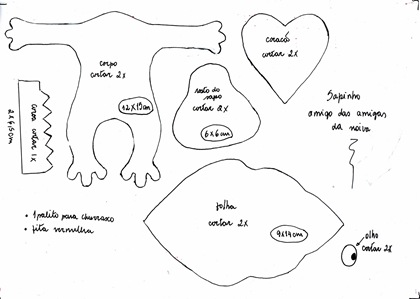 corpo
cortar 2x
12 x 19 cm
coração
cortar 2x
rosto do
sapo
cortar 2x
6x6cm
Sapinho
amigo das amigas
da noiva
coroa cortar 1x
folha
cortar 2x
9x14cm
olho
cortar 2x
• 1 palito para churrasco
• fita vermelha